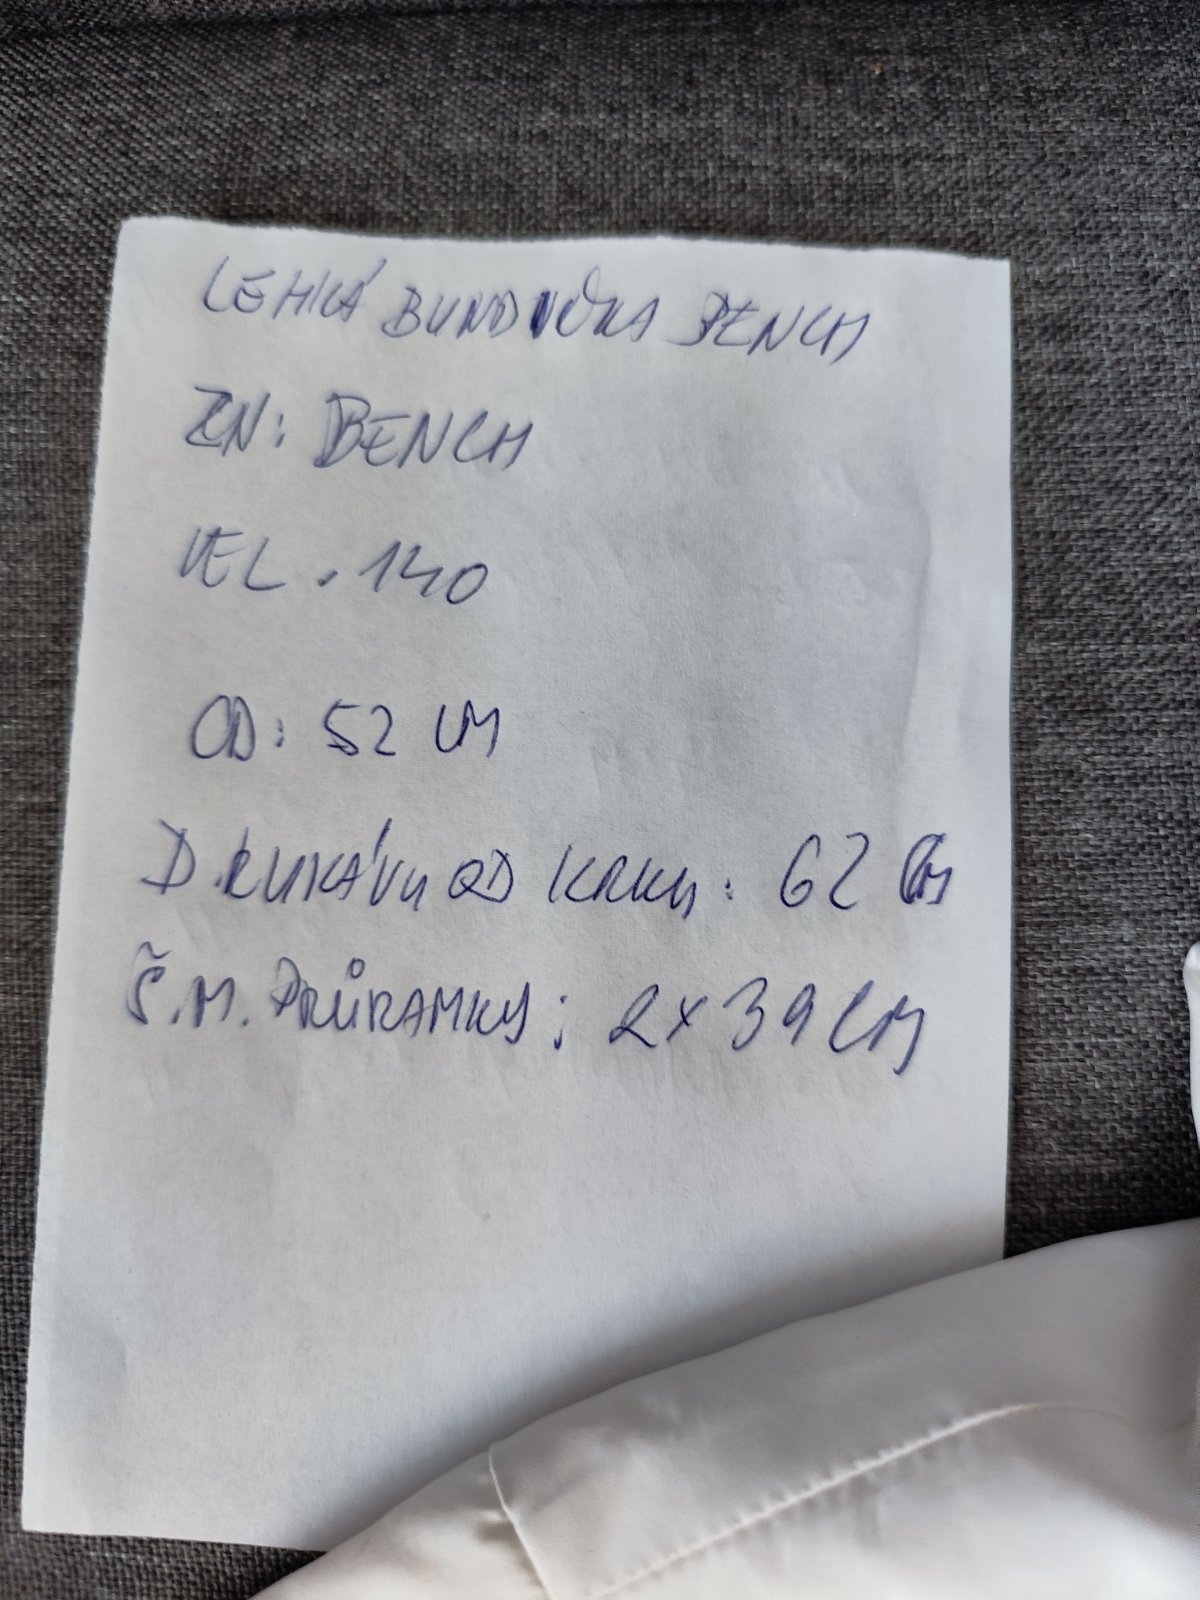 LEHKÁ BUNDIČKA BENCH
ZN: BENCH
VEL. 140
OD: 52 CM
D. RUKÁVU OD KRKU: 62 CM
Š. M. PRŮRAMKY: 2x39 CM